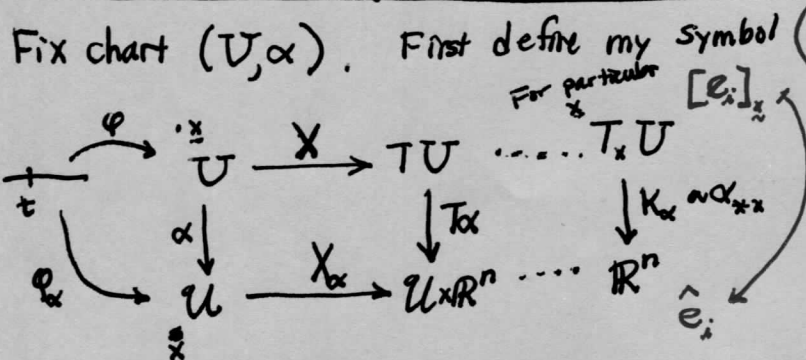 Fix chart (U,α). First define my symbol (
For particular x [e_i]_x
φ ·x U X TU ...... T_x U
t α Tα K_α ~ α_{*x}
φ_α 𝒰 X_α 𝒰×ℝⁿ .... ℝⁿ
x ê_i